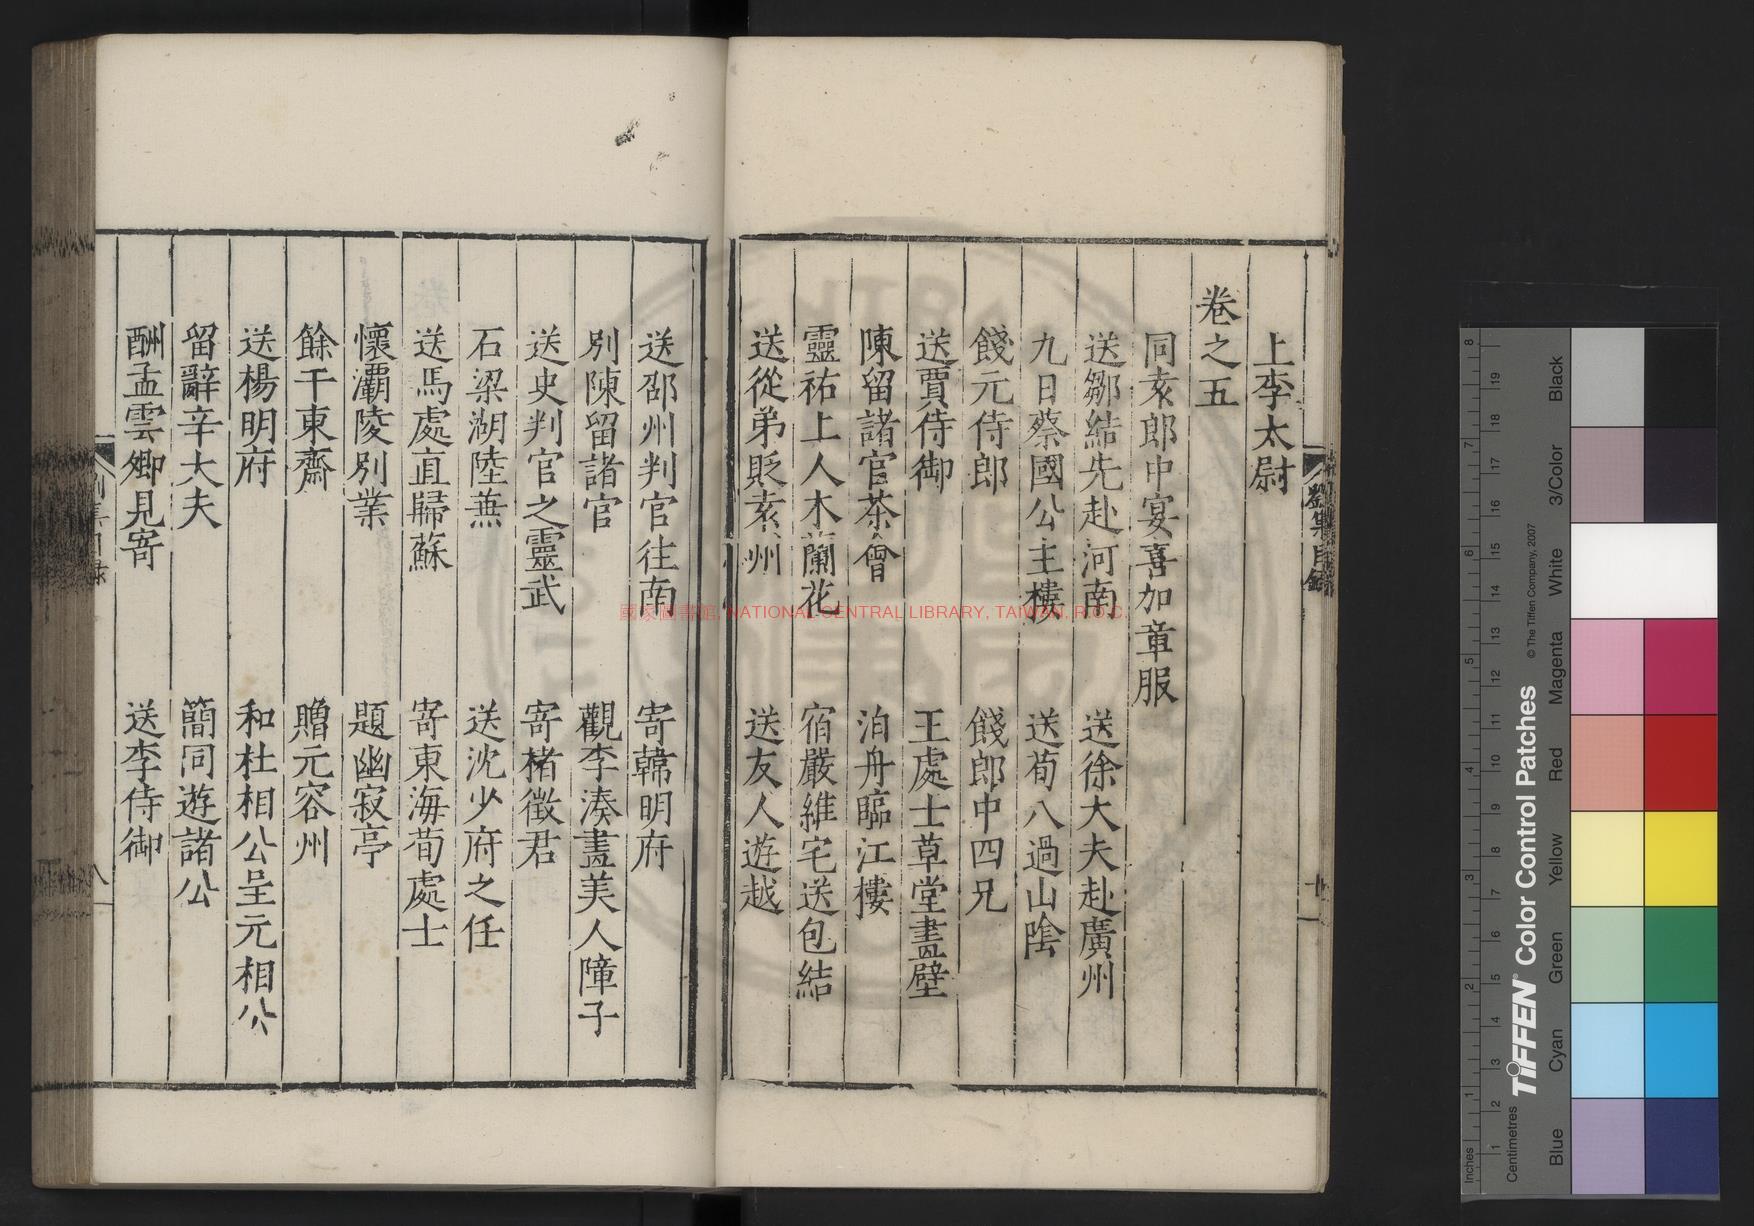 上李太尉
卷之五
同袁郎中宴喜加章服
送鄒結先赴河南 送徐大夫赴廣州
九日蔡國公主樓 送荀八過山陰
餞元侍郎 餞郎中四兄
送賈侍御 王處士草堂畫壁
陳留諸官茶會 泊舟臨江樓
靈祐上人木蘭花 宿嚴維宅送包結
送從弟貶袁州 送友人遊越
送邵州判官往南 寄韓明府
別陳留諸官 觀李湊畫美人障子
送史判官之靈武 寄楮徵君
石梁湖陸蕪 送沈少府之任
送馬處直歸蘇 寄東海荀處士
懷灞陵別業 題幽寂亭
餘干東齋 贈元容州
送楊明府 和杜相公呈元相公
留辭辛大夫 簡同遊諸公
酬孟雲卿見寄 送李侍御
劉集目錄
國家圖書館, NATIONAL CENTRAL LIBRARY, TAIWAN, R.O.C.
TIFFEN Color Control Patches
© The Tiffen Company, 2007
Inches
Centimetres
Blue
Cyan
Green
Yellow
Red
Magenta
White
3/Color
Black